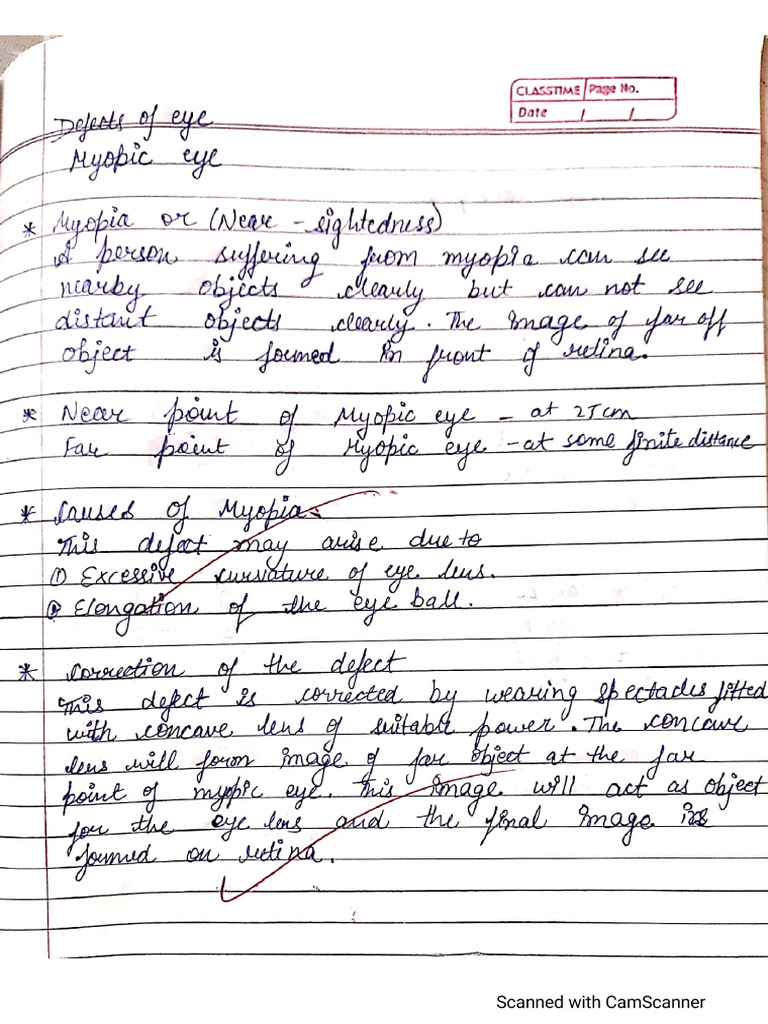 CLASSTIME Page No.
Date / /
Defects of eye
Myopic eye
* Myopia or (Near - sightedness)
A person suffering from myopia can see
nearby objects clearly but can not see
distant objects clearly. The image of far off
object is formed in front of retina.
* Near point of Myopic eye - at 25cm
Far point of Myopic eye - at some finite distance
* Causes of Myopia:-
This defect may arise due to
① Excessive curvature of eye lens.
② Elongation of the eye ball.
* Correction of the defect
This defect is corrected by wearing spectacles fitted
with concave lens of suitable power. The concave
lens will form image of far object at the far
point of myopic eye. This image will act as object
for the eye lens and the final image is
formed on retina.
Scanned with CamScanner